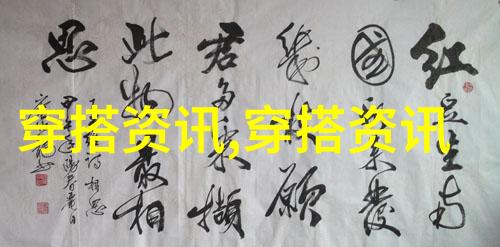 穿搭资讯,穿搭资讯
红豆生南
國春来發
幾枝願
君多采撷
此物最相
思